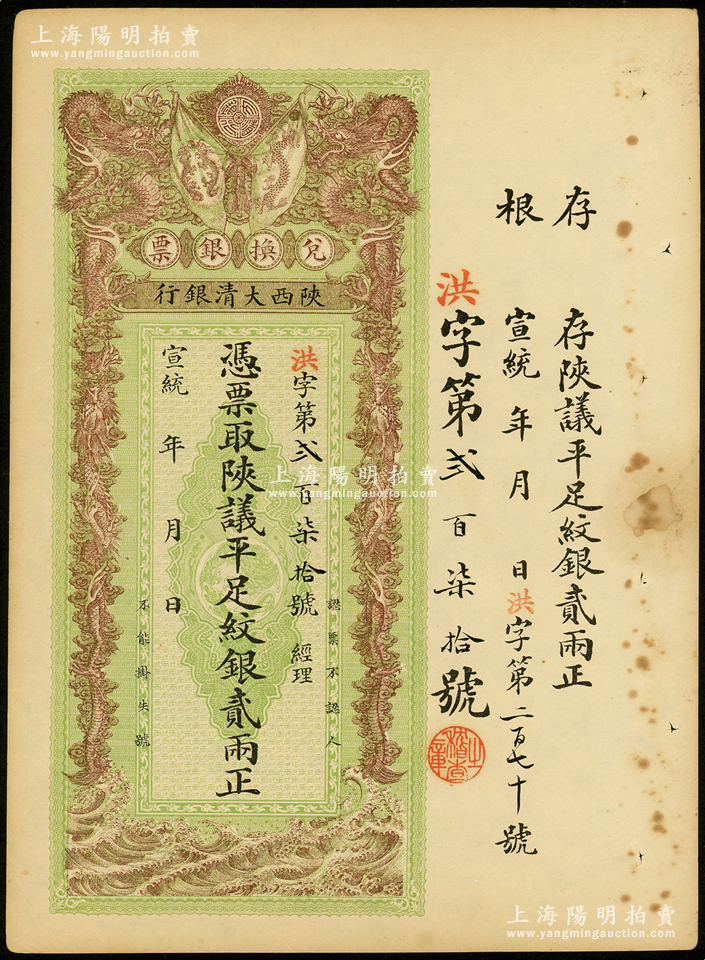 上海陽明拍賣
www.yangmingauction.com
兌換銀票
陝西大清銀行
洪字第弍百柒拾號 經理
憑票取陝議平足紋銀貳兩正
宣統 年 月 日
認票不認人
不能掛失號
存根
存陝議平足紋銀貳兩正
宣統 年 月 日 洪字第二百七十號
洪字第弍百柒拾號
稽查之章
上海陽明拍賣
www.yangmingauction.com
上海陽明拍賣
www.yangmingauction.com